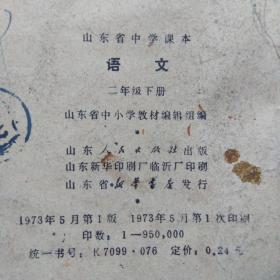 山东省中学课本
语文
二年级下册
山东省中小学教材编辑组编
山东人民出版社出版
山东新华印刷厂临沂厂印刷
山东省新华书店发行
1973年5月第1版 1973年5月第1次印刷
印数：1—950,000
统一书号：K7099·076 定价：0.24元